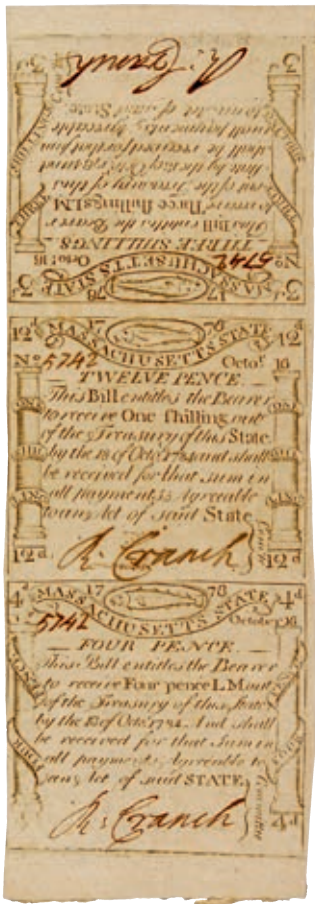 3d 3d
MASSACHUSETTS STATE
17 78
No 5742 Octo.r 16
THREE SHILLINGS
This Bill entitles the Bearer
to receive Three shillings LM
out of the Treasury of this
State by the 18 of Octr
shall be received for that sum
in all payments Agreeable
to an Act of said State
R: Cranch
THREE SHILLING
12d 12d
MASSACHUSETTS STATE
No 5742 Octo.r 16
TWELVE PENCE
This Bill entitles the Bearer
to receive One shilling out
of the Treasury of this State
by the 18 of Octr 1784 and shall
be received for that sum in
all payments Agreeable
to an Act of said State
R: Cranch
12d 12d
ONE
ONE
4d 17 78 4d
MASSACHUSETTS STATE
5742 October 16
FOUR PENCE
This Bill entitles the Bearer
to receive Four pence LM out
of the Treasury of this State
by the 18 of Octo. 1784. And shall
be received for that Sum in
all payments Agreeable to
an Act of said STATE
R: Cranch
Committee
4d
FOUR
FOUR